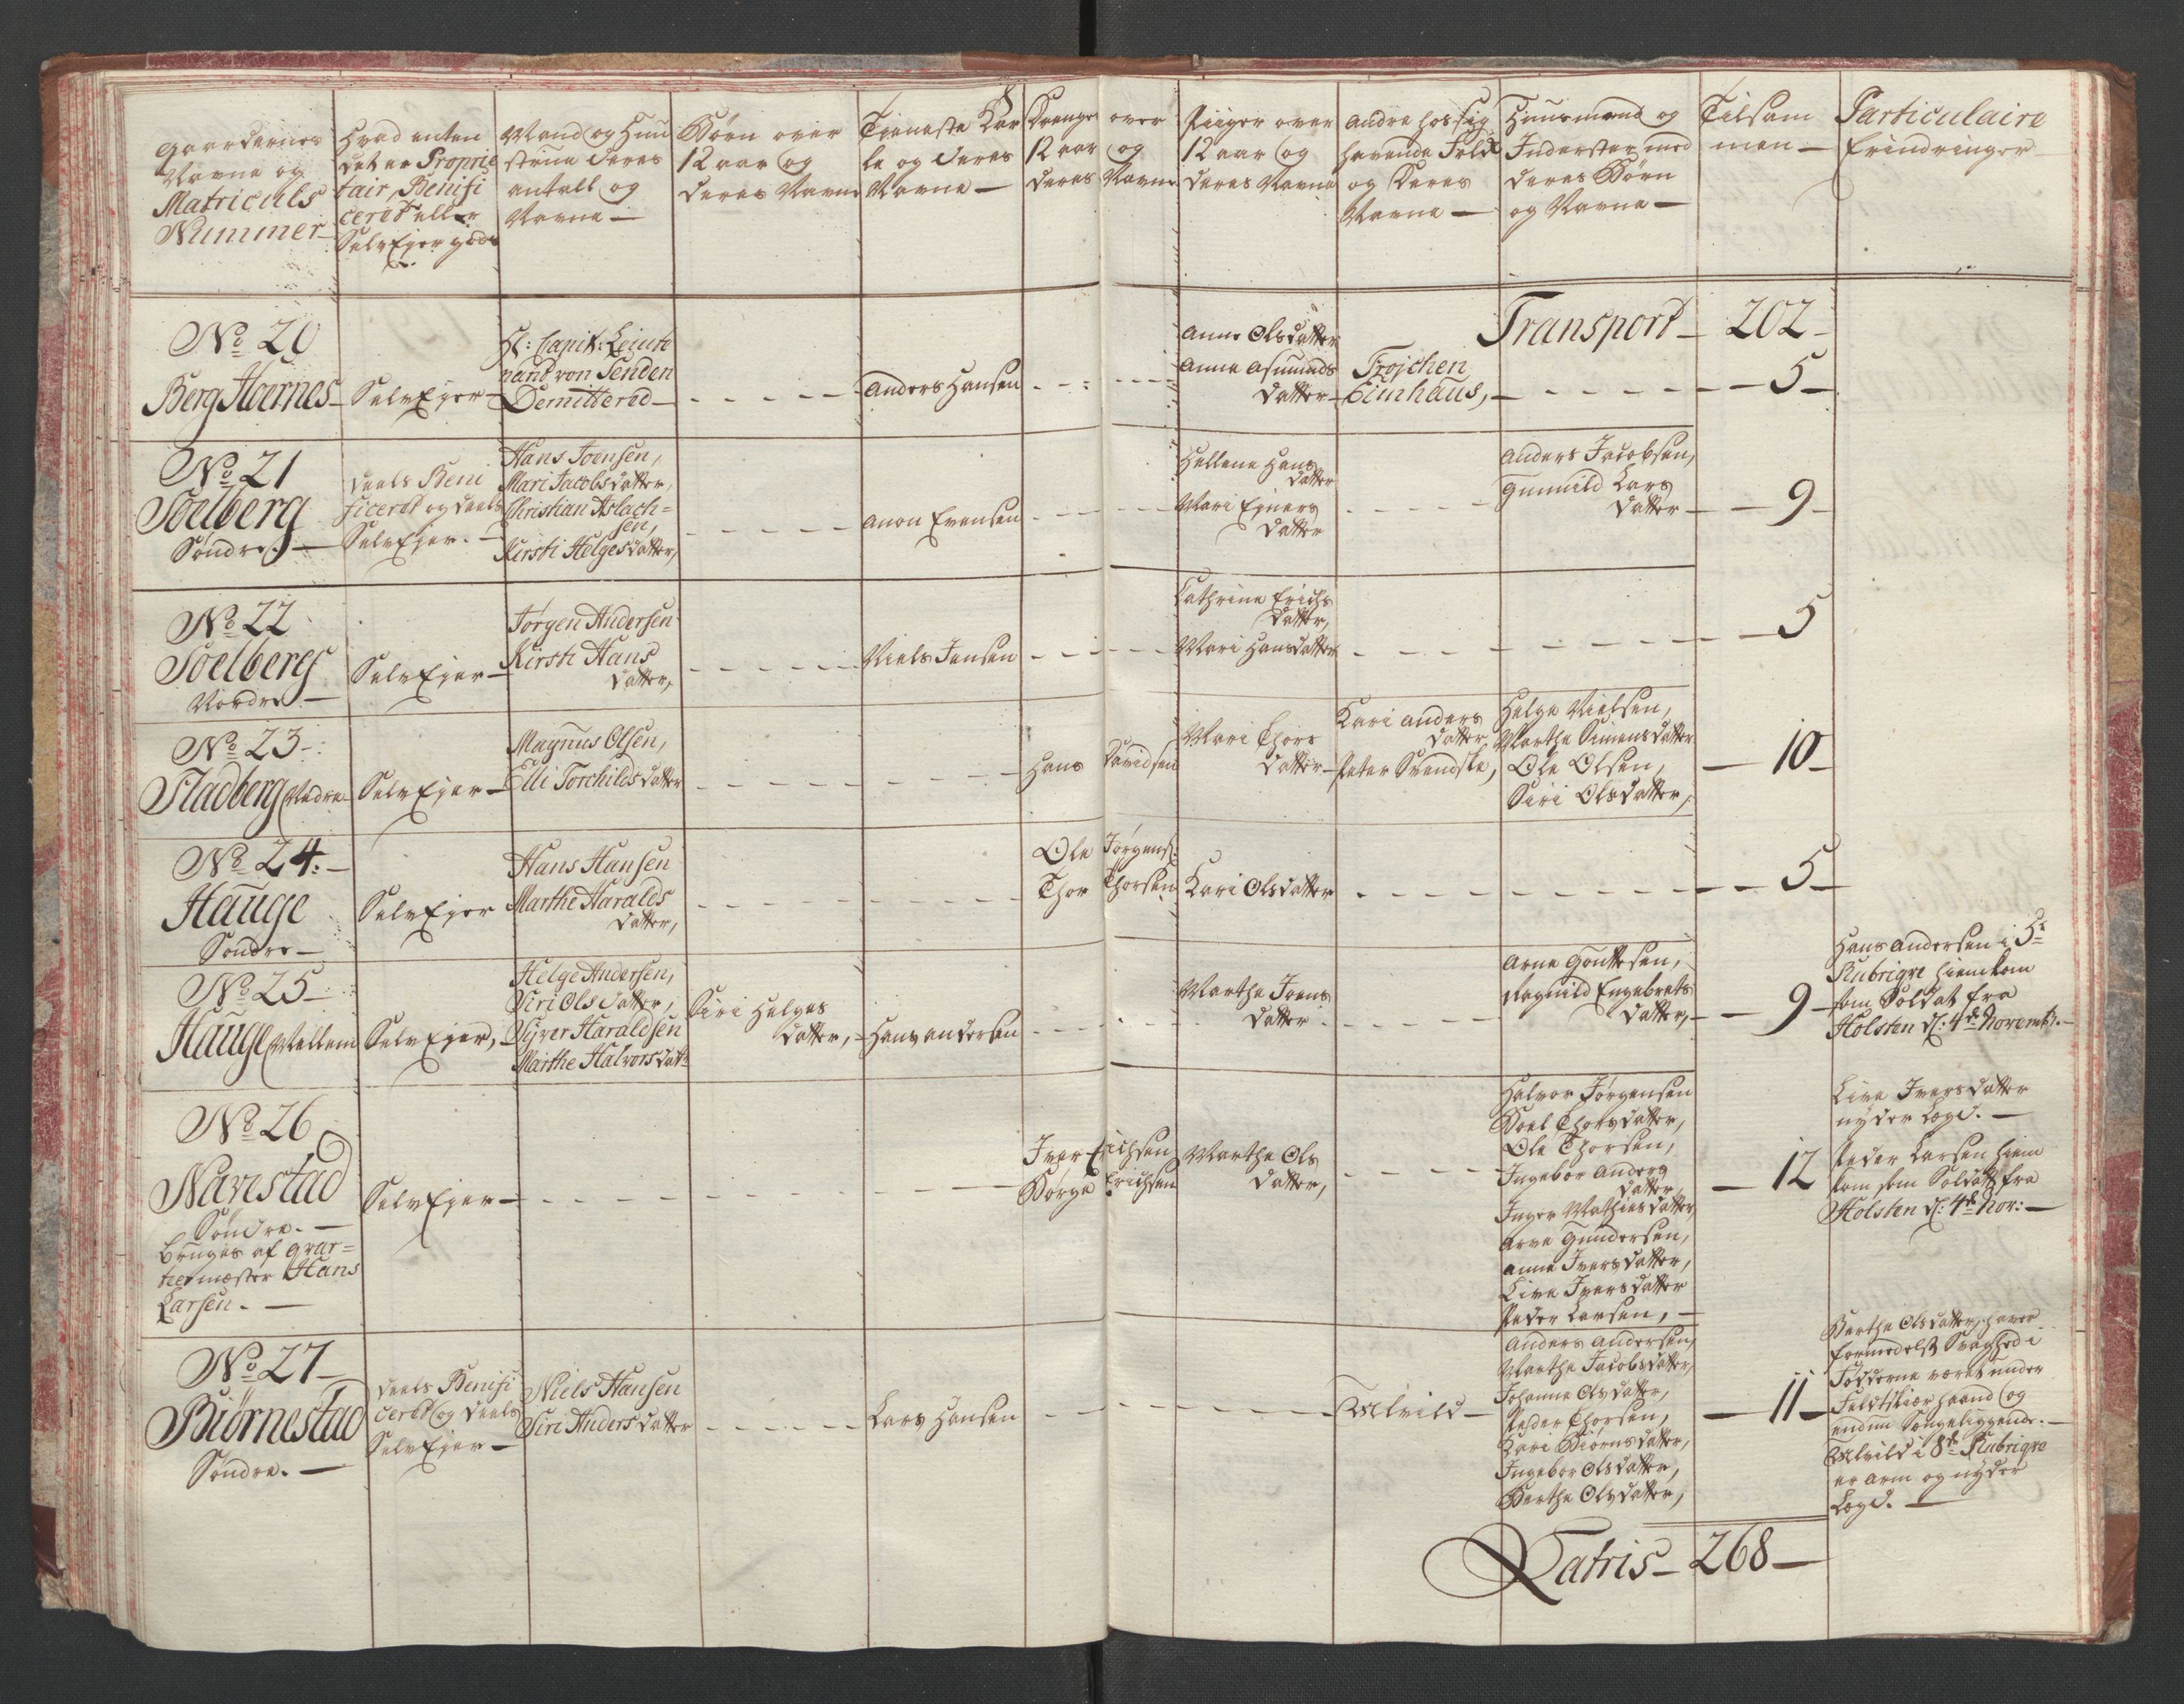 Gaardernes
Navne og
Matriculs
Nummer
Hvad enten
det er Proprie
tair, Benifi
ceret eller
SelvEjer gods
Mand og Huu
strue deres
antall og
Navne —
Børn over
12 aar og
deres Navne
Tieneste Kar
le og deres
Navne —
Drenge over
12 aar og
deres Navne
Piiger over
12 aar og
deres Navne
andre hos sig
havende Folk
og deres
Navne —
Huusmænd og
Inderster med
deres Børn
og Navne —
Tilsam
men —
Particulaire
Erindringer
Transport — 202 —
No 20
Berg Hoernes —
SelvEjer —
Hr: Capit: Leiute
nand von Senden
Demittered —
Anders Hansen
Anne Olsdatter
Anne Asmunds
datter —
Frojchen
Eimhaus,
5 —
No 21
Soelberg
Søndre —
deels Beni
ficeret og deels
SelvEjer. —
Hans Joensen,
Mari Jacobsdatter,
Christian Aslach=
sen,
Kirsti Helgesdatter,
Anon Evensen
Hellene Hans
datter
Mari Ejners
datter
Anders Jacobsen,
Gunnild Lars
datter —
9 —
No 22
Soelberg
Nordre —
SelvEjer —
Jørgen Andersen
Kirsti Hans
datter,
Niels Jensen
Cathrine Erichs
datter,
Mari Hansdatter
5
No 23 —
Stadberg Nedre
SelvEjer —
Magnus Olsen,
Elli Torchildsdatter
Hans Davidsen
Mari Thors
datter —
Kari Anders
datter
Peter Svendske,
Helge Nielsen,
Marthe Simensdatter
Ole Olsen,
Siri Olsdatter,
10 —
No 24: —
Hauge
Søndre —
SelvEjer
Hans Hansen
Marthe Haralds
datter,
Ole Jørgens:
Thor Thorsen
Kari Olsdatter
5 —
No 25 —
Hauge Mellem
SelvEjer,
Helge Andersen,
Siri Olsdatter,
Syver Haraldsen
Marthe Halvorsdatr
Siri Helges
datter,
Hans Andersen
Marthe Joens
datter
Arne Gouttesen,
Ragnild Engebrets
datter,
9 —
Hans Andersen i 5te
Rubrique hiemkom
som Soldat fra
Holsten d: 4de Novembr. —
No 26
Narestad
Søndre. —
bruges af qvar=
teermester Hans
Larsen. —
SelvEjer —
Iver Erichsen
Børge Erichsen
Marthe Ols
datter,
Halvor Jørgensen
Boel Thorsdatter,
Ole Thorsen,
Ingebor Anders
datter,
Inger Mathiesdatter
Arve Gundersen,
Anne Iversdatter,
Live Iversdatter
Peder Larsen, —
12
Live Iversdatter
nyder Lægd. —
Peder Larsen hiem
kom som Soldatt fra
Holsten d: 4de Nov: —
No 27 —
Biørnestad
Søndre. —
deels Benifi
ceret og deels
SelvEjer —
Niels Hansen
Siri Andersdatter
Lars Hansen
Alvild —
Anders Andersen,
Marthe Jacobsdatter,
Johanne Olsdatter,
Peder Thorsen,
Kari Biørnsdatter,
Ingebor Olsdatter,
Berthe Olsdatter,
11 —
Berthe Olsdatter, haver
formedelst Svaghed i
Fødderne været under
Feldtskiær haand og
endnu Sengeliggende. —
Alvild i 8de Rubrique
er arm og nyder
Lægd. —
Latris — 268 —